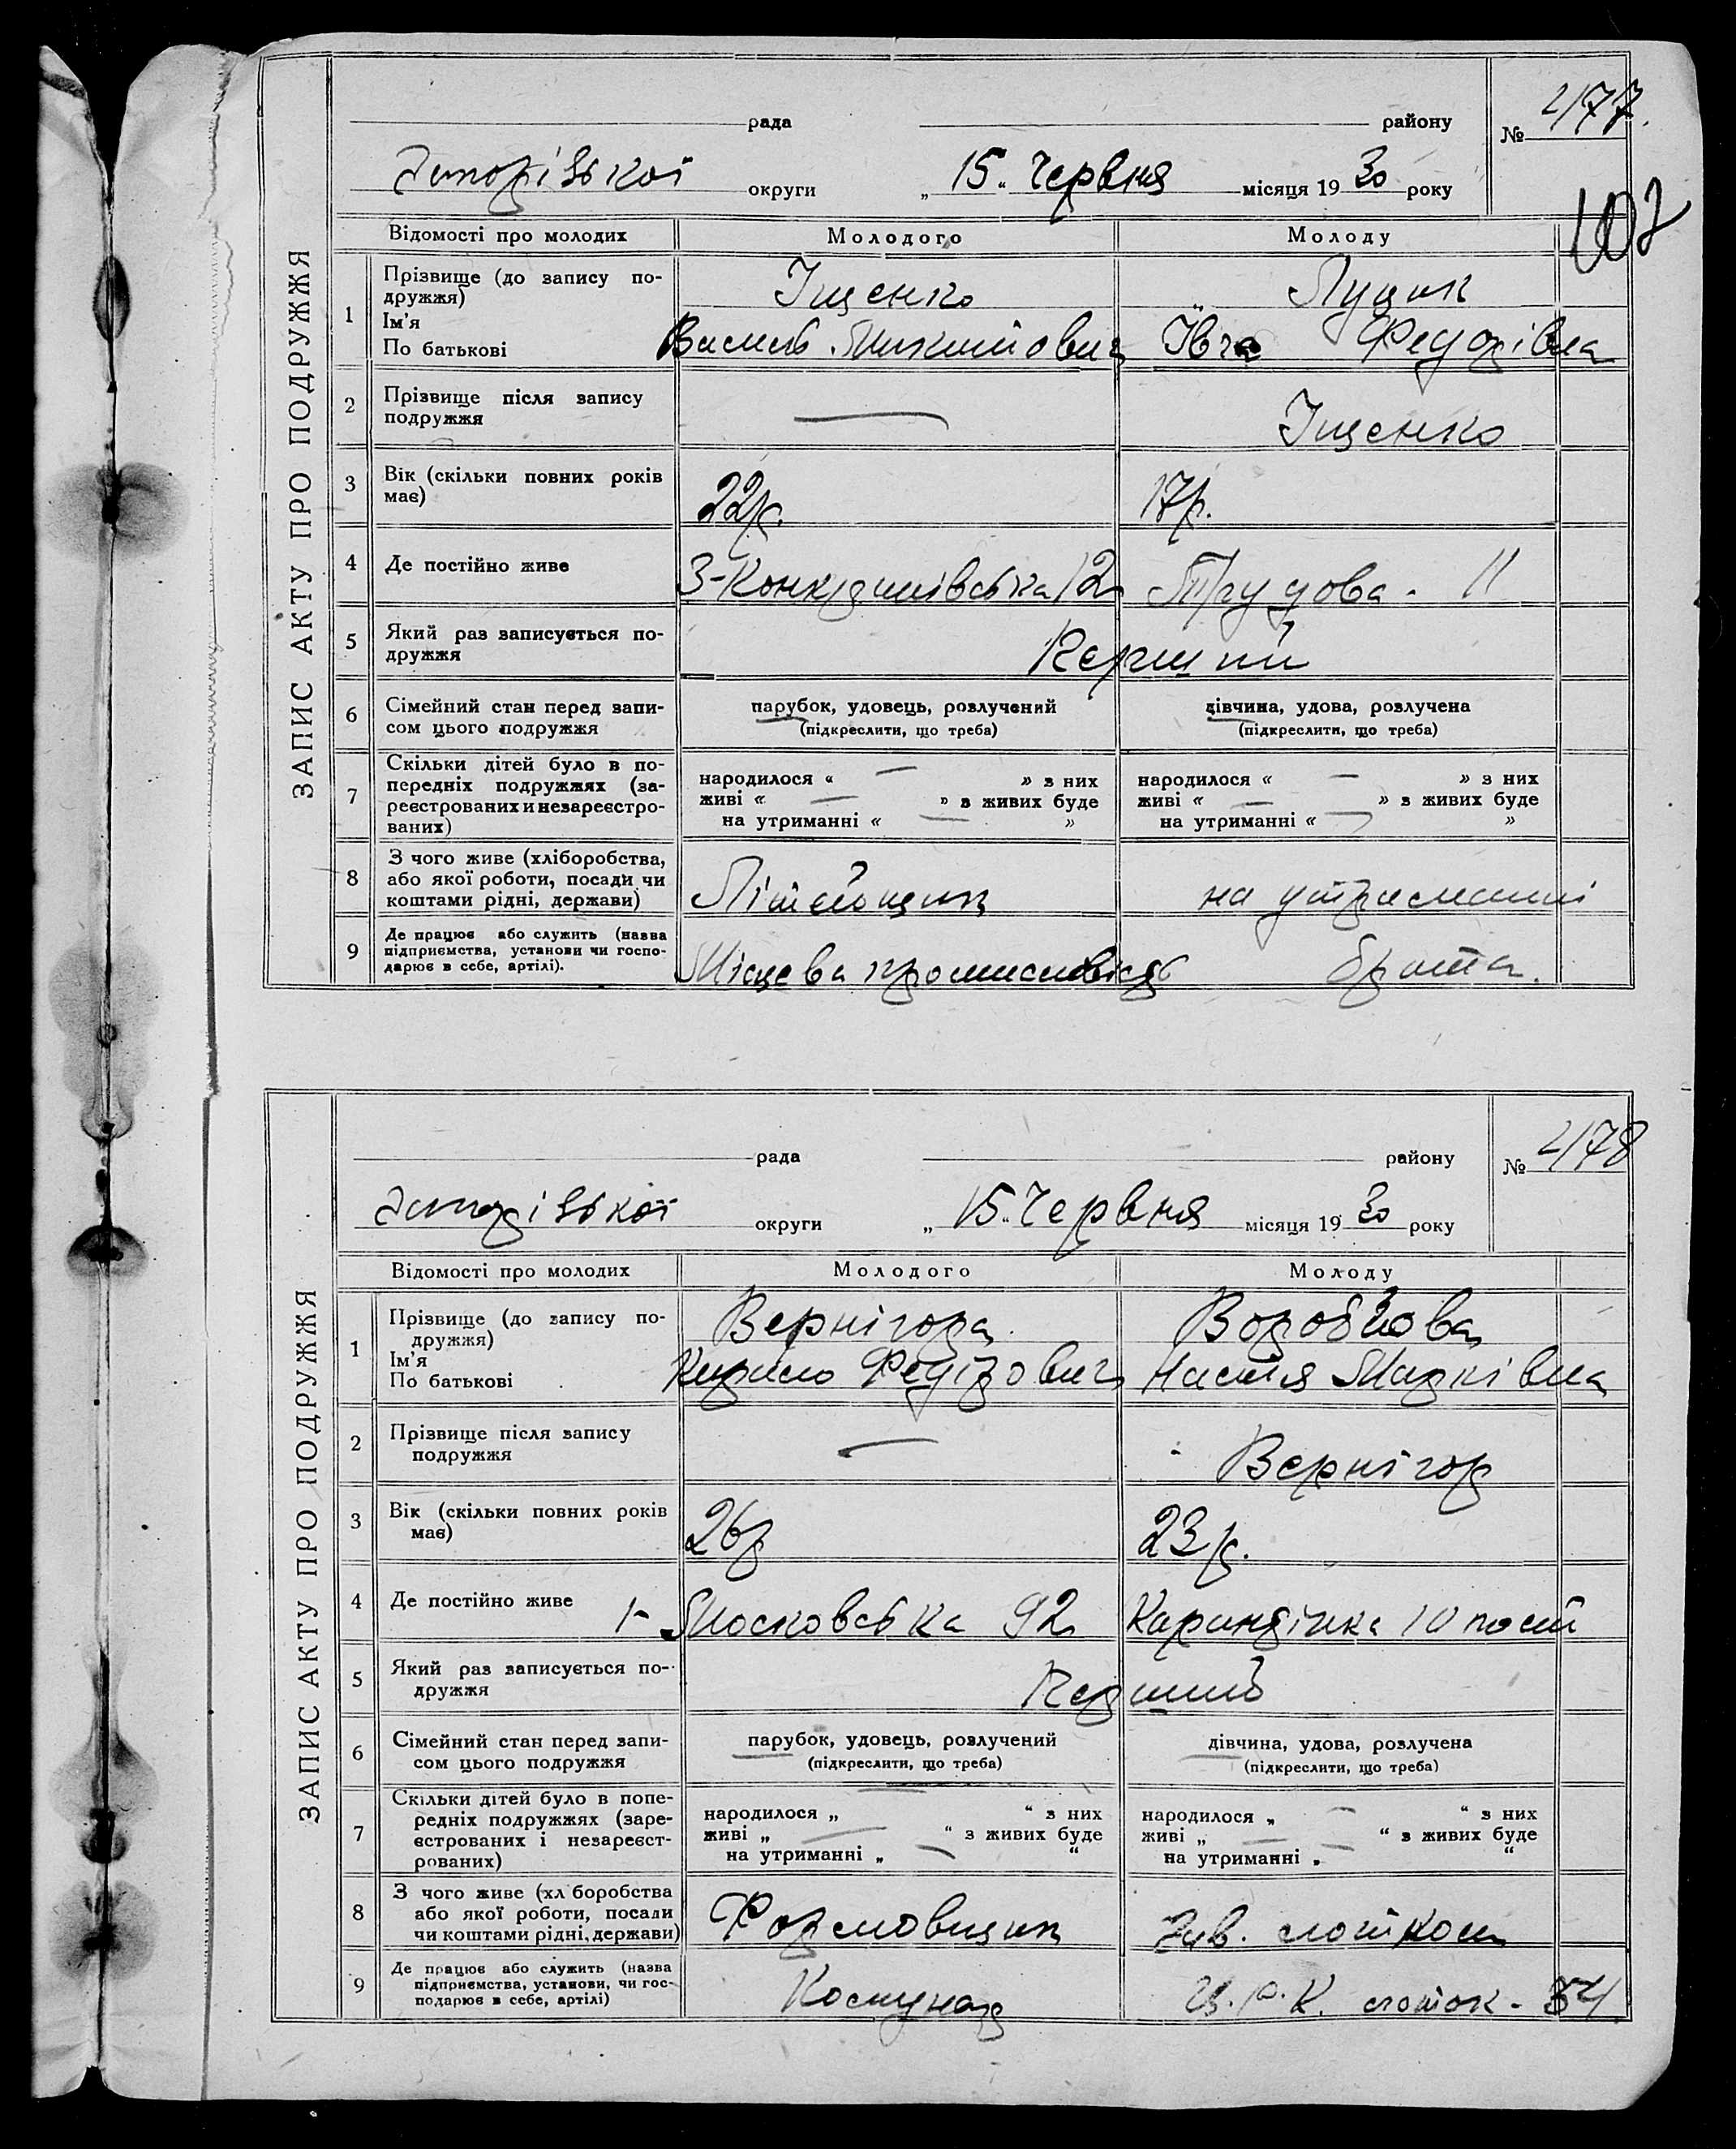 ЗАПИС АКТУ ПРО ПОДРУЖЖЯ
рада району № 477.
округи „15“ Червня місяця 1930 року
107
Відомості про молодих Молодого Молоду
1 Прізвище (до запису по- Іщенко Луцик
дружжя)
Ім'я
По батькові Василь Федорівна
2 Прізвище після запису
подружжя — Іщенко
3 Вік (скільки повних років
має) 22р. 17р.
4 Де постійно живе 12 Трудова - 11
5 Який раз записується по-
дружжя Перший
6 Сімейний стан перед запи- парубок, удовець, розлучений дівчина, удова, розлучена
сом цього подружжя (підкреслити, що треба) (підкреслити, що треба)
7 Скільки дітей було в по-
передніх подружжях (за- народилося « — » з них народилося « — » з них
реєстрованих и незареєстро- живі « — » з живих буде живі « — » з живих буде
ваних) на утриманні « — » на утриманні « — »
8 З чого живе (хліборобства,
або якої роботи, посади чи
коштами рідні, держави) Літейщик на утриманні
9 Де працює або служить (назва
підприємства, установи чи госпо-
дарює в себе, артілі). Місцева промисловість брата.
ЗАПИС АКТУ ПРО ПОДРУЖЖЯ
рада району № 478
округи „15“ Червня місяця 1930 року
Відомості про молодих Молодого Молоду
1 Прізвище (до запису по- Вернігора Воробйова
дружжя)
Ім'я
По батькові Кирило Федорович Настя Марківна
2 Прізвище після запису
подружжя — Вернігор
3 Вік (скільки повних років
має) 26р 23р.
4 Де постійно живе 1-Московська 92 10
5 Який раз записується по-
дружжя Перший
6 Сімейний стан перед запи- парубок, удовець, розлучений дівчина, удова, розлучена
сом цього подружжя (підкреслити, що треба) (підкреслити, що треба)
7 Скільки дітей було в попе-
редніх подружжях (заре- народилося „ — “ з них народилося „ — “ з них
єстрованих і незареєст- живі „ — “ з живих буде живі „ — “ з живих буде
рованих) на утриманні „ — “ на утриманні „ — “
8 З чого живе (хл боробства
або якої роботи, посади
чи коштами рідні, держави) Формовщик Зав.
9 Де працює або служить (назва
підприємства, установи, чи гос-
подарює в себе, артілі) Комунар Ц.Р.К.